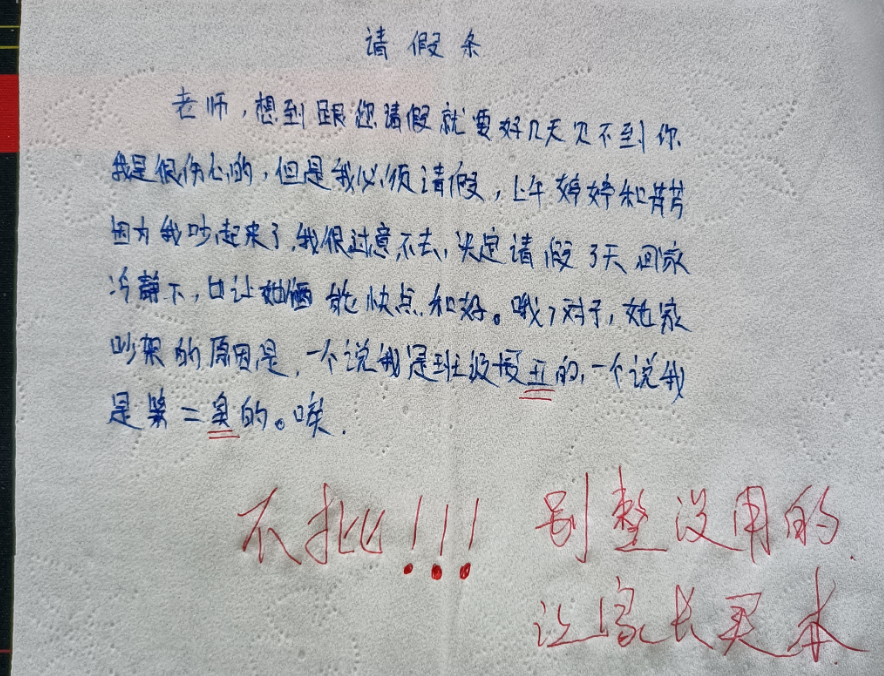 请假条
老师，想到跟您请假就要好几天见不到你
我是很伤心的，但是我必须请假，上午婷婷和芳芳
因为我吵起来了，我很过意不去，决定请假3天回家
冷静下，也让她俩能快点和好。哦，对了，她家
吵架的原因是，一个说我是班级最丑的，一个说我
是第二丑的。唉.
不批！！！别整没用的.
让家长买本